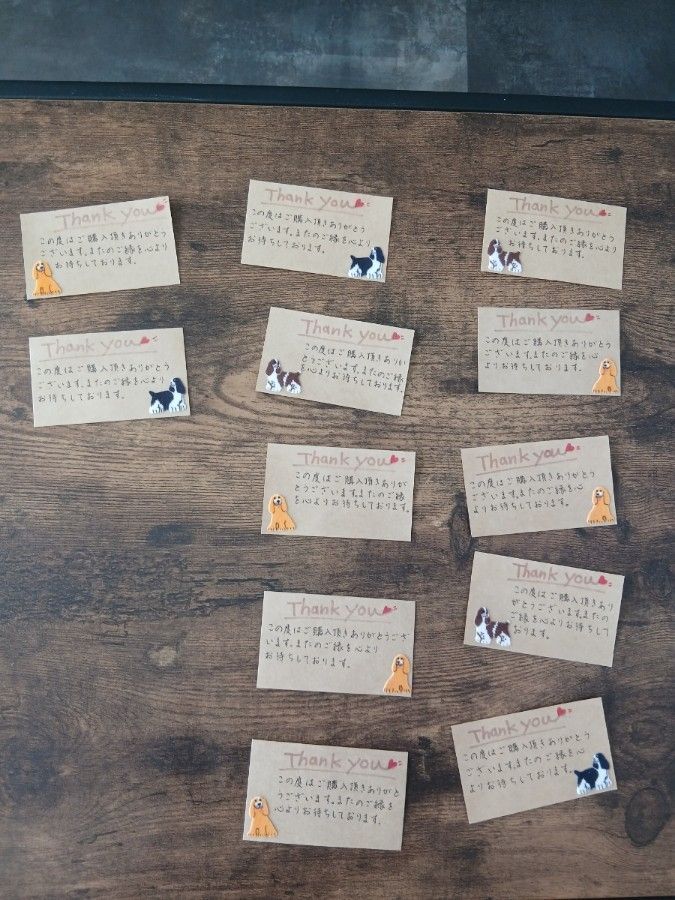 Thank you
この度はご購入頂きありがとう
ございます。またのご縁を心より
お待ちしております。
Thank you
この度はご購入頂きありがとうご
ざいます。またのご縁を心より
お待ちしております。
Thank you
この度はご購入頂きありがとうご
ざいます。またのご縁を心より
お待ちしております。
Thank you
この度はご購入頂きありがとうご
ざいます。またのご縁を心より
お待ちしております。
Thank you
この度はご購入頂きありが
とうございます。またのご縁
を心よりお待ちしております。
Thank you
この度はご購入頂きありがとう
ございます。またのご縁を心
よりお待ちしております。
Thank you
この度はご購入頂きありが
とうございます。またのご縁
を心よりお待ちしております。
Thank you
この度はご購入頂きありがとう
ございます。またのご縁を心
よりお待ちしております。
Thank you
この度はご購入頂きありがとうござ
います。またのご縁を心より
お待ちしております。
Thank you
この度はご購入頂きあり
がとうございます。またの
ご縁を心よりお待ちして
おります。
Thank you
この度はご購入頂きありがと
うございます。またのご縁を
心よりお待ちしております。
Thank you
この度はご購入頂きありがとう
ございます。またのご縁を心
よりお待ちしております。